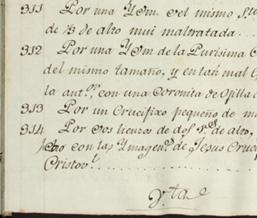 311 Por una Ym. del mismo Sto
de 1/3 de alto mui maltratada.
312 Por una Ym de la Purisima C
del mismo tamaño, y en tan mal
la antr. con una Coronita de ojilla
313 Por un Crucifixo pequeño de m
314 Por dos lienzos de dos de alto,
con las Ymagens. de Jesus Cruc
Cristov.
Vta